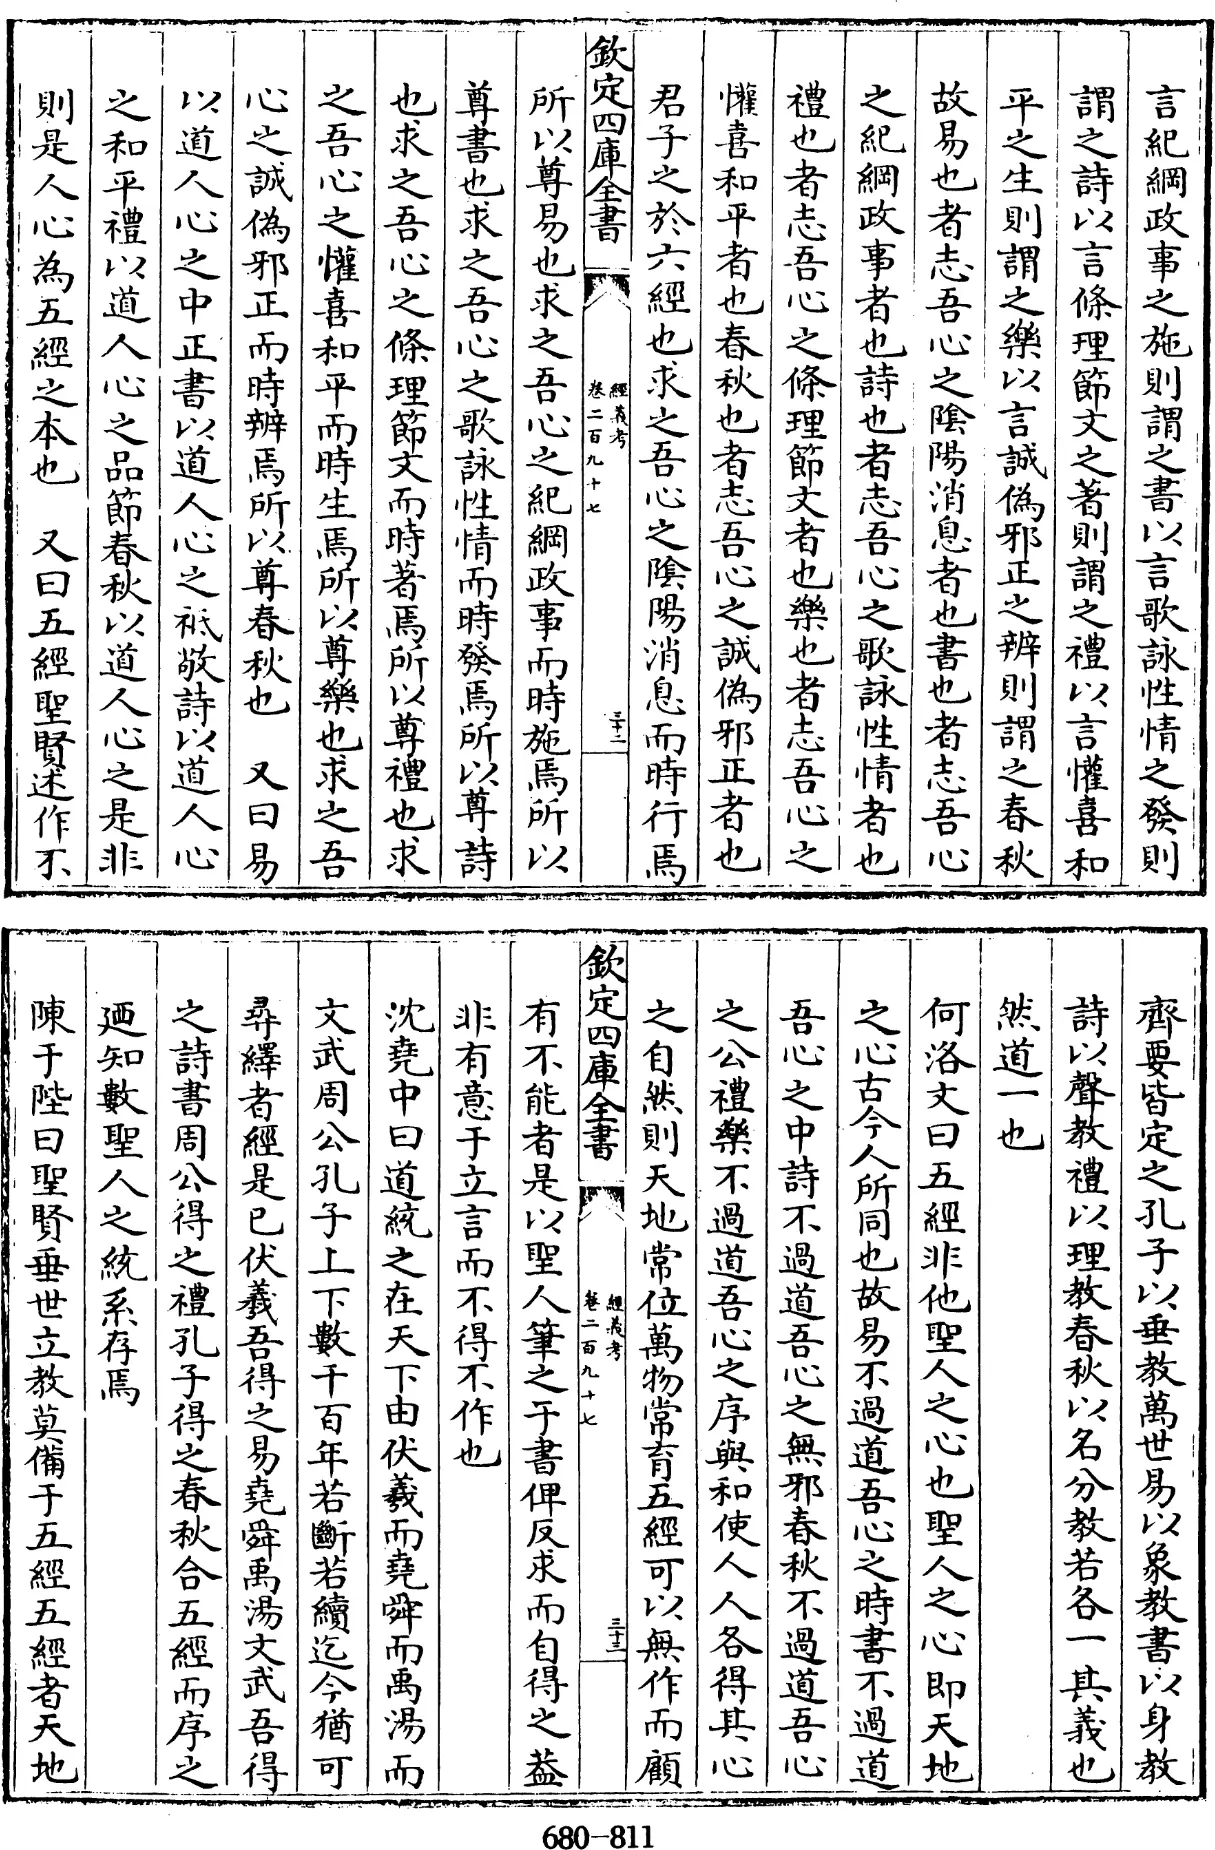 言紀綱政事之施則謂之書以言歌詠性情之發則
謂之詩以言條理節文之著則謂之禮以言懽喜和
平之生則謂之樂以言誠偽邪正之辨則謂之春秋
故易也者志吾心之陰陽消息者也書也者志吾心
之紀綱政事者也詩也者志吾心之歌詠性情者也
禮也者志吾心之條理節文者也樂也者志吾心之
懽喜和平者也春秋也者志吾心之誠偽邪正者也
君子之於六經也求之吾心之陰陽消息而時行焉
欽定四庫全書
經義考
卷二百九十七
三十二
所以尊易也求之吾心之紀綱政事而時施焉所以
尊書也求之吾心之歌詠性情而時發焉所以尊詩
也求之吾心之條理節文而時著焉所以尊禮也求
之吾心之懽喜和平而時生焉所以尊樂也求之吾
心之誠偽邪正而時辨焉所以尊春秋也 又曰易
以道人心之中正書以道人心之祗敬詩以道人心
之和平禮以道人心之品節春秋以道人心之是非
則是人心為五經之本也 又曰五經聖賢述作不
齊要皆定之孔子以垂教萬世易以象教書以身教
詩以聲教禮以理教春秋以名分教若各一其義也
然道一也
何洛文曰五經非他聖人之心也聖人之心即天地
之心古今人所同也故易不過道吾心之時書不過道
吾心之中詩不過道吾心之無邪春秋不過道吾心
之公禮樂不過道吾心之序與和使人人各得其心
之自然則天地常位萬物常育五經可以無作而顧
欽定四庫全書
經義考
卷二百九十七
三十三
有不能者是以聖人筆之于書俾反求而自得之葢
非有意于立言而不得不作也
沈堯中曰道統之在天下由伏羲而堯舜而禹湯而
文武周公孔子上下數千百年若斷若續迄今猶可
尋繹者經是已伏羲吾得之易堯舜禹湯文武吾得
之詩書周公得之禮孔子得之春秋合五經而序之
廼知數聖人之統系存焉
陳于陛曰聖賢垂世立教莫備于五經五經者天地
680-811